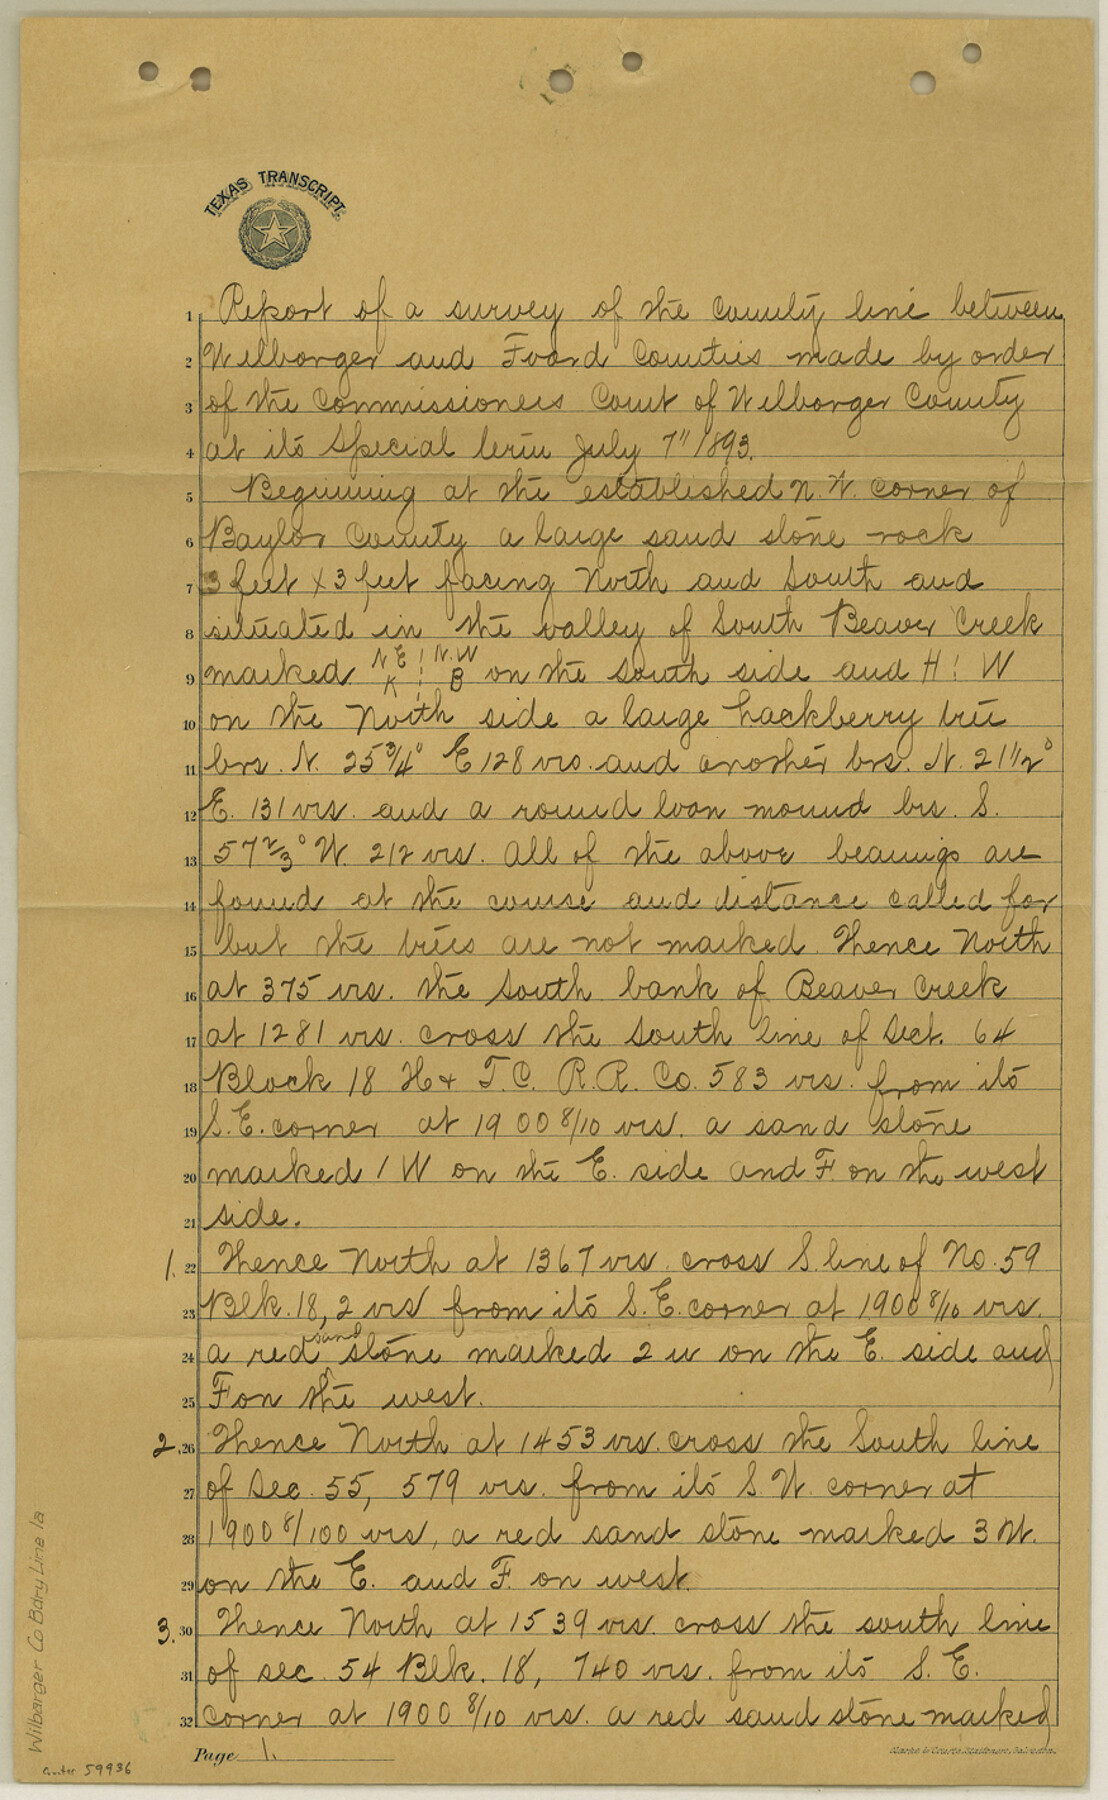 TEXAS TRANSCRIPT.
1 Report of a survey of the County line between
2 Wilbarger and Foard Counties made by order
3 of the Commissioners Court of Wilbarger County
4 at its Special term July 7" 1893.
5 Beginning at the established N.W. corner of
6 Baylor County a large sand stone rock
7 3 feet x 3 feet facing North and South and
8 situated in the valley of South Beaver Creek
9 marked N E K ¦ N.W B on the south side and H ¦ W
10 on the North side a large hackberry tree
11 brs. N. 25 3/4° E 128 vrs. and another brs. N. 21 1/2°
12 E. 131 vrs. and a round loan mound brs. S.
13 57 2/3° W. 212 vrs. All of the above bearings are
14 found at the course and distance called for
15 but the trees are not marked. Thence North
16 at 375 vrs. the South bank of Beaver Creek
17 at 1281 vrs. cross the South line of Sect. 64
18 Block 18 H & T.C. R.R. Co. 583 vrs. from its
19 S.E. corner at 1900 8/10 vrs. a sand stone
20 marked 1 W on the E. side and F. on the west
21 side.
1. 22 Thence North at 1367 vrs. cross S. line of No. 59
23 Blk. 18, 2 vrs from its S.E. corner at 1900 8/10 vrs.
24 a red sand stone marked 2 w on the E. side and
25 F on the west.
2. 26 Thence North at 1453 vrs. cross the South line
27 of Sec. 55, 579 vrs. from its S.W. corner at
28 1900 8/100 vrs, a red sand stone marked 3 W.
29 on the E. and F. on west.
3. 30 Thence North at 1539 vrs. cross the south line
31 of sec. 54 Blk. 18, 740 vrs. from its S. E.
32 corner at 1900 8/10 vrs. a red sand stone marked
Page 1.
Wilbarger Co Bdry Line 1a
counter 59936